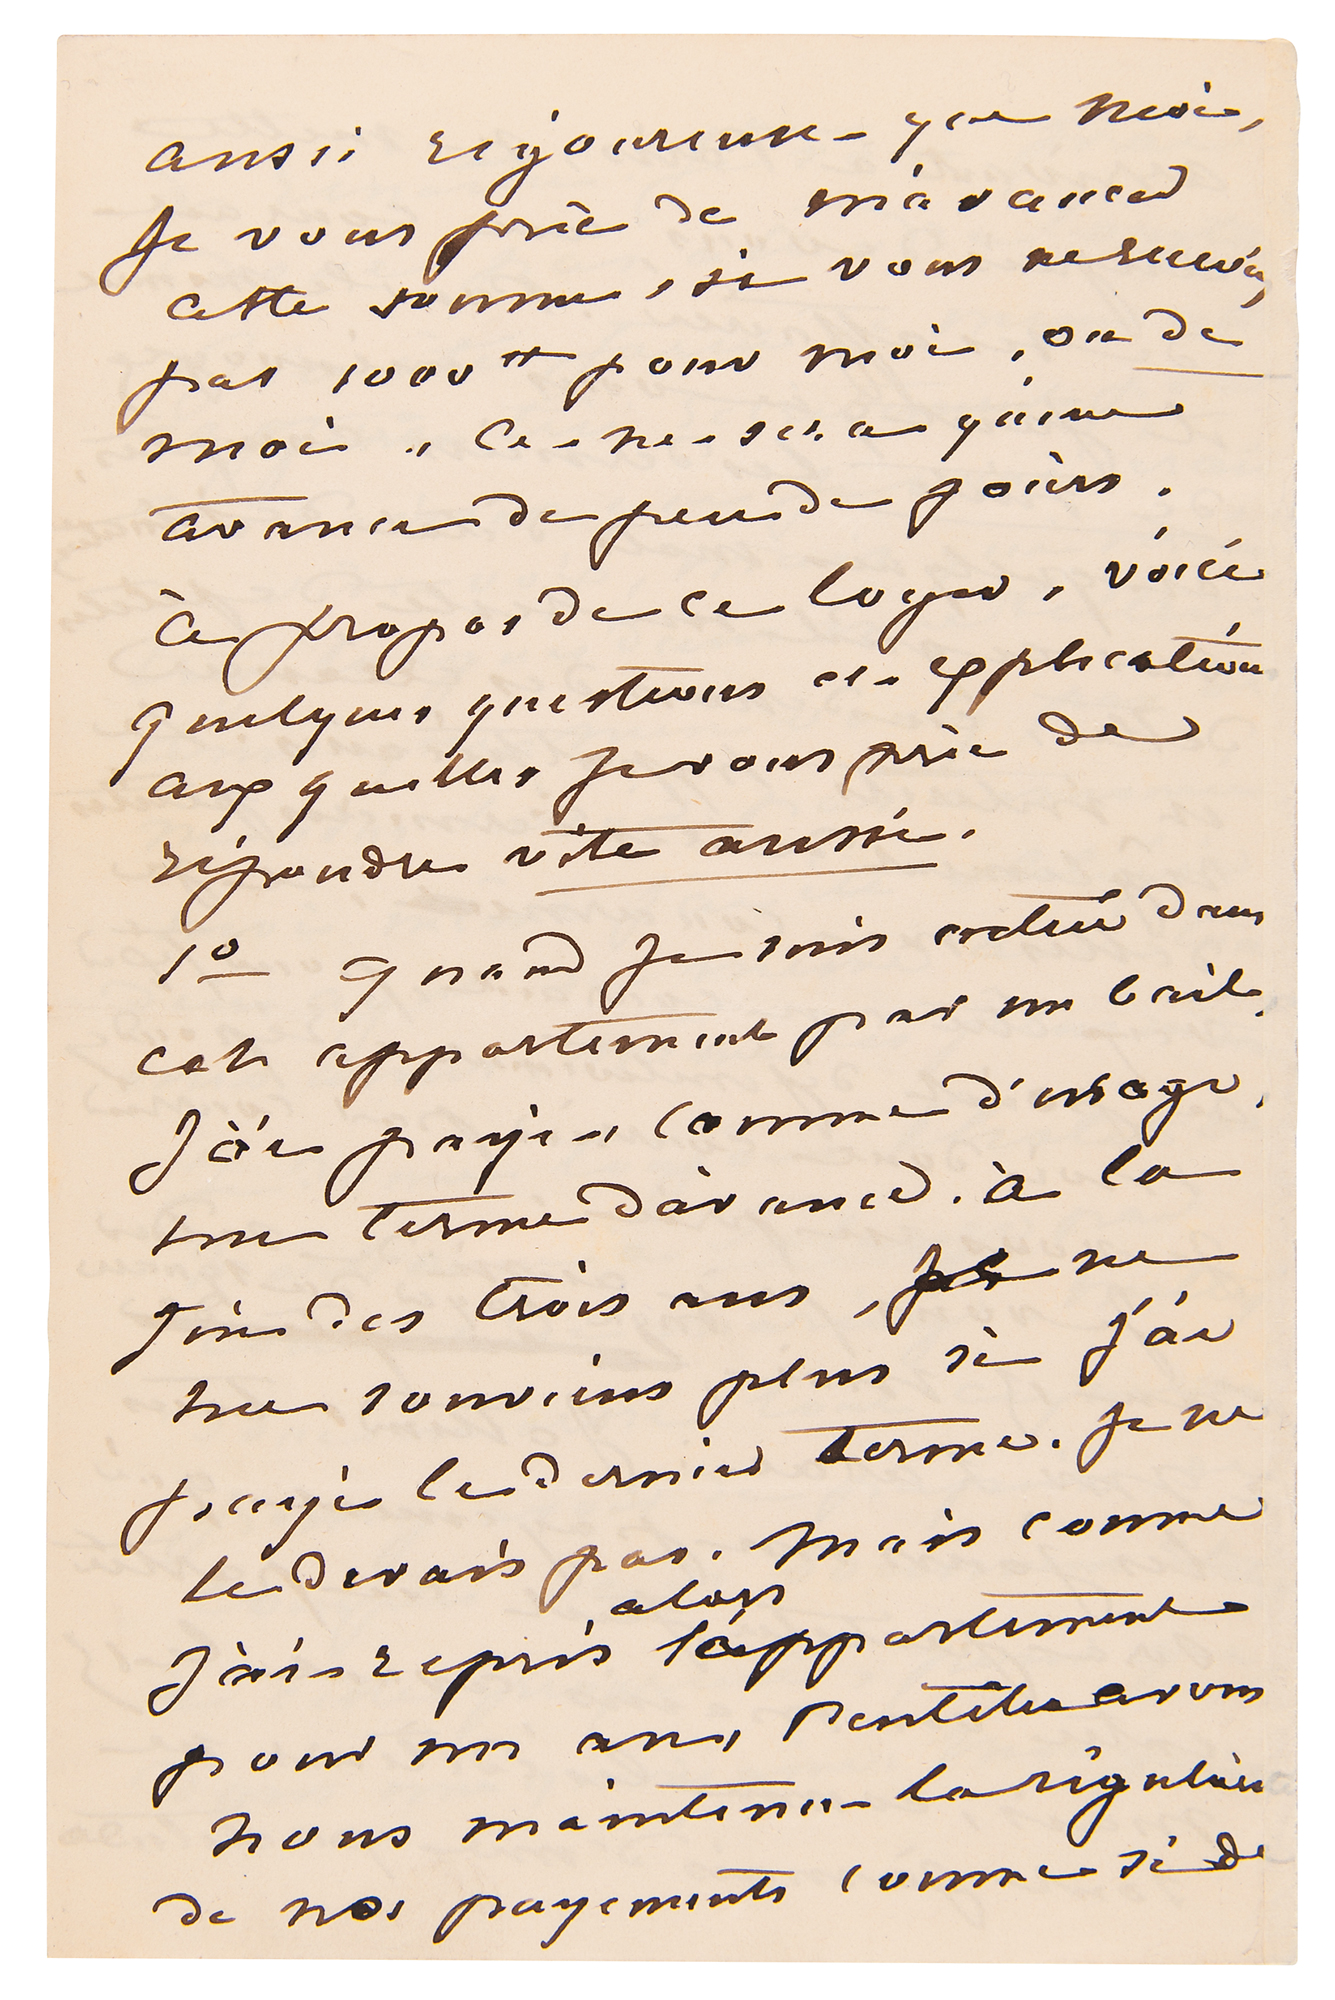 aussi rigoureuse que moi,
Je vous prie de m'avancer
cette somme, si vous ne recevez
pas 1000 ff pour moi, ou de
moi. Ce ne sera qu'une
avance de peu de jours.
à propos de ce loyer, voici
quelques questions et explication
auxquelles je vous prie de
répondre vite aussi.
1o quand je suis entré dans
cet appartement par un bail,
J'ai payé, comme d'usage,
un terme d'avance. à la
fin des trois ans, je ne
me souviens plus si j'ai
payé le dernier terme. Je ne
le devais pas. Mais comme
alors
J'ai repris l'appartement
pour un an, peut être avons
nous maintenu la régulière
de nos payements comme si de